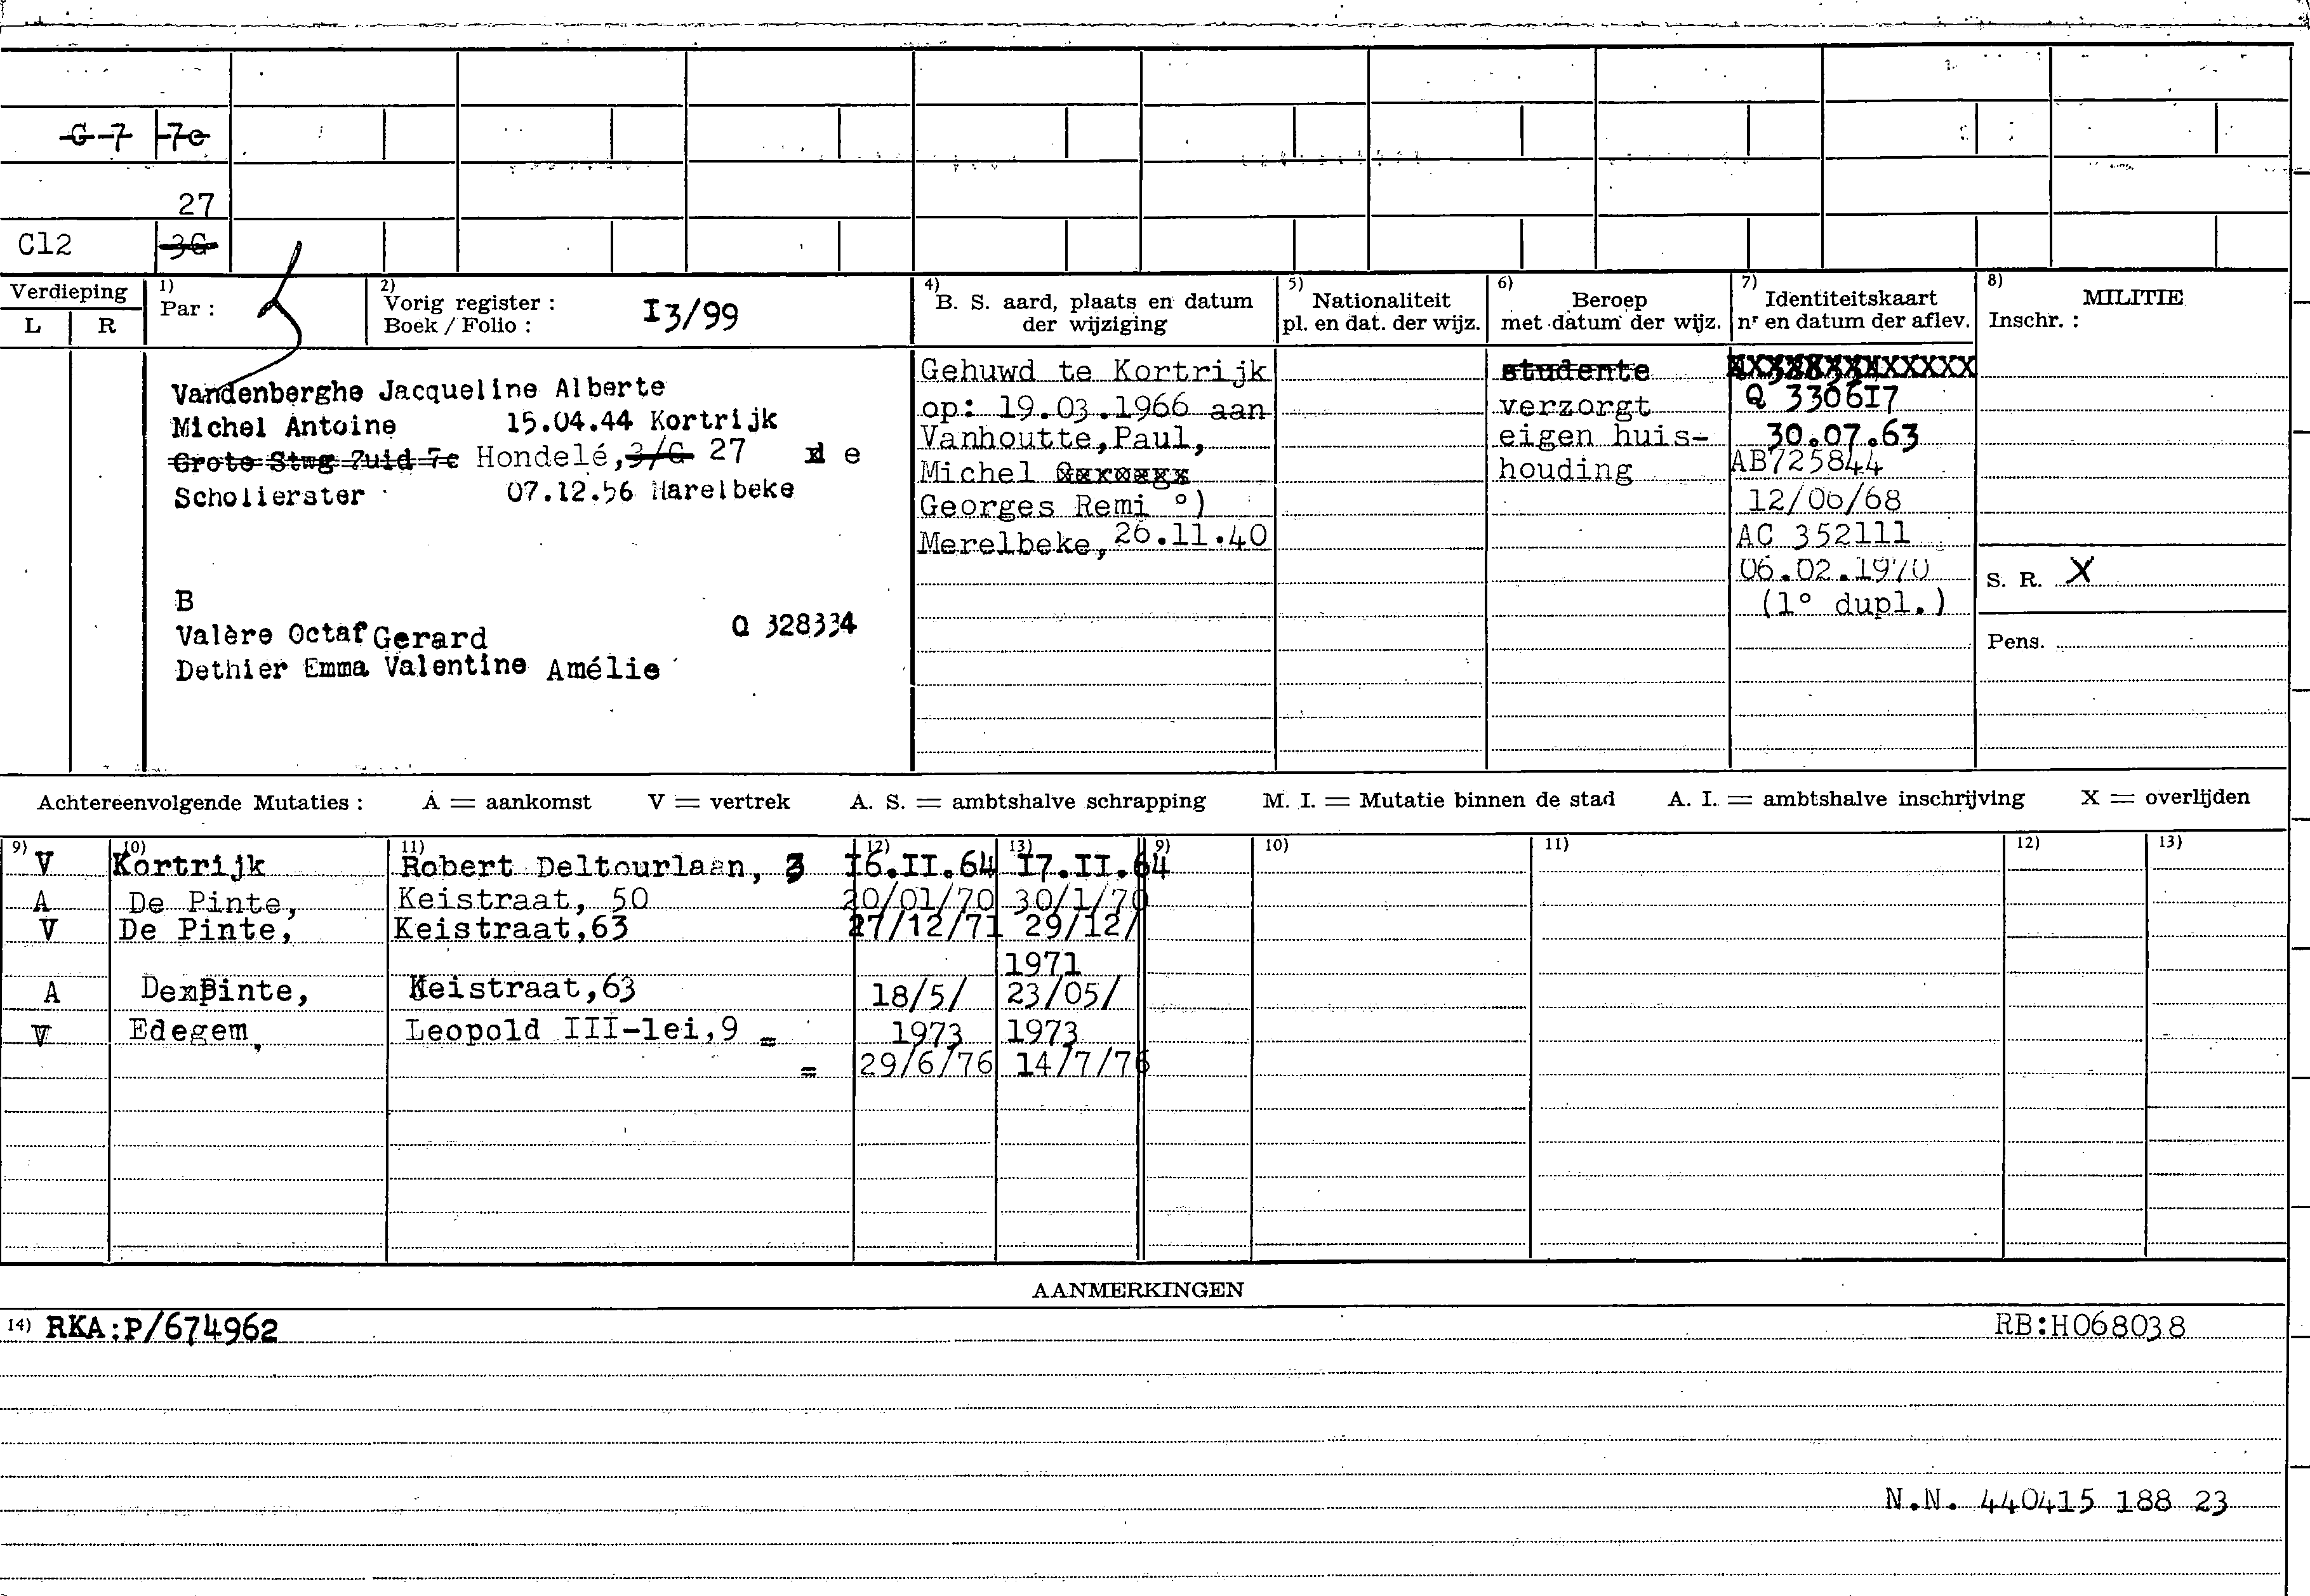 G 7 7e
27
C12 3G
Verdieping
L R
1) Par :
2) Vorig register :
Boek / Folio : I3/99
4) B. S. aard, plaats en datum
der wijziging
5) Nationaliteit
pl. en dat. der wijz.
6) Beroep
met datum der wijz.
7) Identiteitskaart
nr en datum der aflev.
8) MILITIE
Inschr. :
Vandenberghe Jacqueline Alberte
Michel Antoine 15.04.44 Kortrijk
Grote Stwg Zuid 7e Hondelé, 3/G 27 e
Scholierster 07.12.56 Harelbeke
B
Valère Octaf Gerard Q 328334
Dethier Emma Valentine Amélie
Gehuwd te Kortrijk
op: 19.03.1966 aan
Vanhoutte, Paul,
Michel
Georges Remi °)
Merelbeke, 26.11.40
studente
verzorgt
eigen huis-
houding
Q 3306I7
30.07.63
AB725844
12/06/68
AC 352111
06.02.1970
(1° dupl.)
S. R. X
Pens.
Achtereenvolgende Mutaties : A = aankomst V = vertrek A. S. = ambtshalve schrapping M. I. = Mutatie binnen de stad A. I. = ambtshalve inschrijving X = overlijden
9) 10) 11) 12) 13) 9) 10) 11) 12) 13)
V Kortrijk Robert Deltourlaan, 3 I6.II.64 I7.II.64
A De Pinte, Keistraat, 50 20/01/70 30/1/70
V De Pinte, Keistraat,63 27/12/71 29/12/
1971
A De Pinte, Keistraat,63 18/5/ 23/05/
V Edegem, Leopold III-lei,9 = 1973 1973
= 29/6/76 14/7/76
AANMERKINGEN
14) RKA:P/674962 RB:H068038
N.N. 440415 188 23